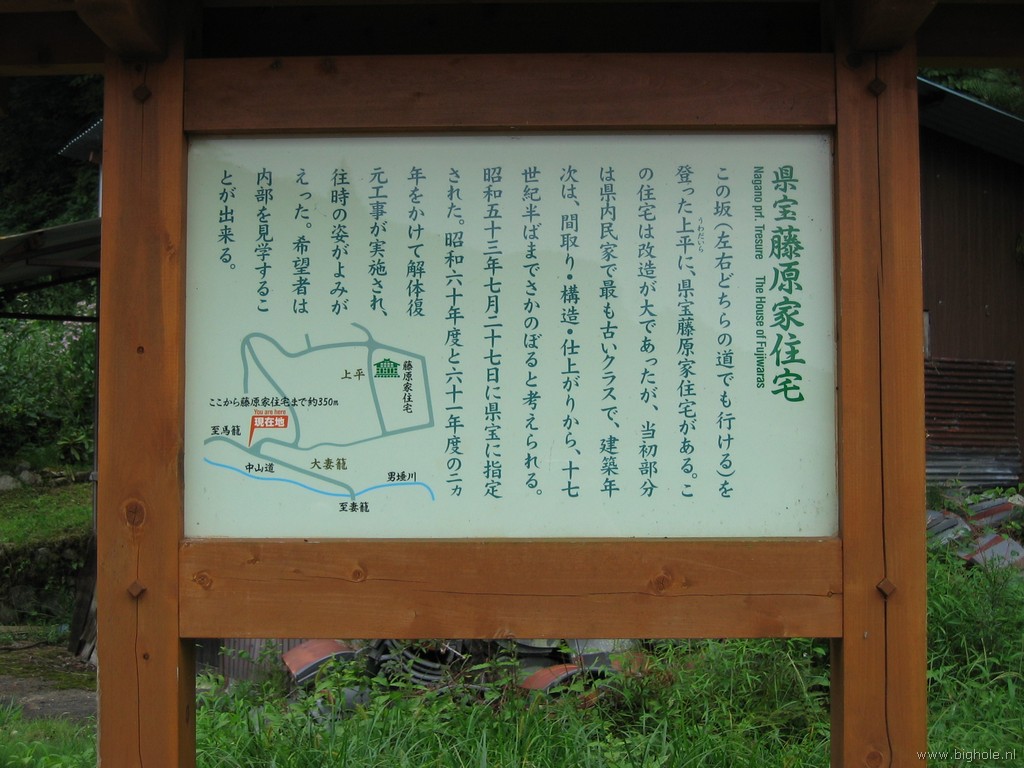 県宝藤原家住宅
Nagano prf. Tresure The House of Fujiwaras
この坂(左右どちらの道でも行ける)を
登った上平に、県宝藤原家住宅がある。こ
うわだいら
の住宅は改造が大であったが、当初部分
は県内民家で最も古いクラスで、建築年
次は、間取り・構造・仕上がりから、十七
世紀半ばまでさかのぼると考えられる。
昭和五十三年七月二十七日に県宝に指定
された。昭和六十年度と六十一年度の二ヵ
年をかけて解体復
元工事が実施され、
往時の姿がよみが
えった。希望者は
内部を見学するこ
とが出来る。
藤原家住宅
上平
ここから藤原家住宅まで約350m
You are here
現在地
至馬籠
中山道
大妻籠
男埵川
至妻籠
www.bighole.nl